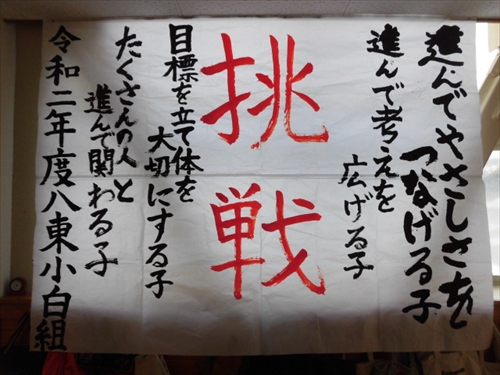 進んでやさしさを
つなげる子
進んで考えを
広げる子
挑戦
目標を立て体を
大切にする子
たくさんの人と
進んで関わる子
令和二年度八東小白組